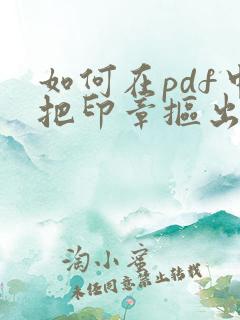 如何在pdf中
把印章抠出
淘小蜜
未经同意禁止转载